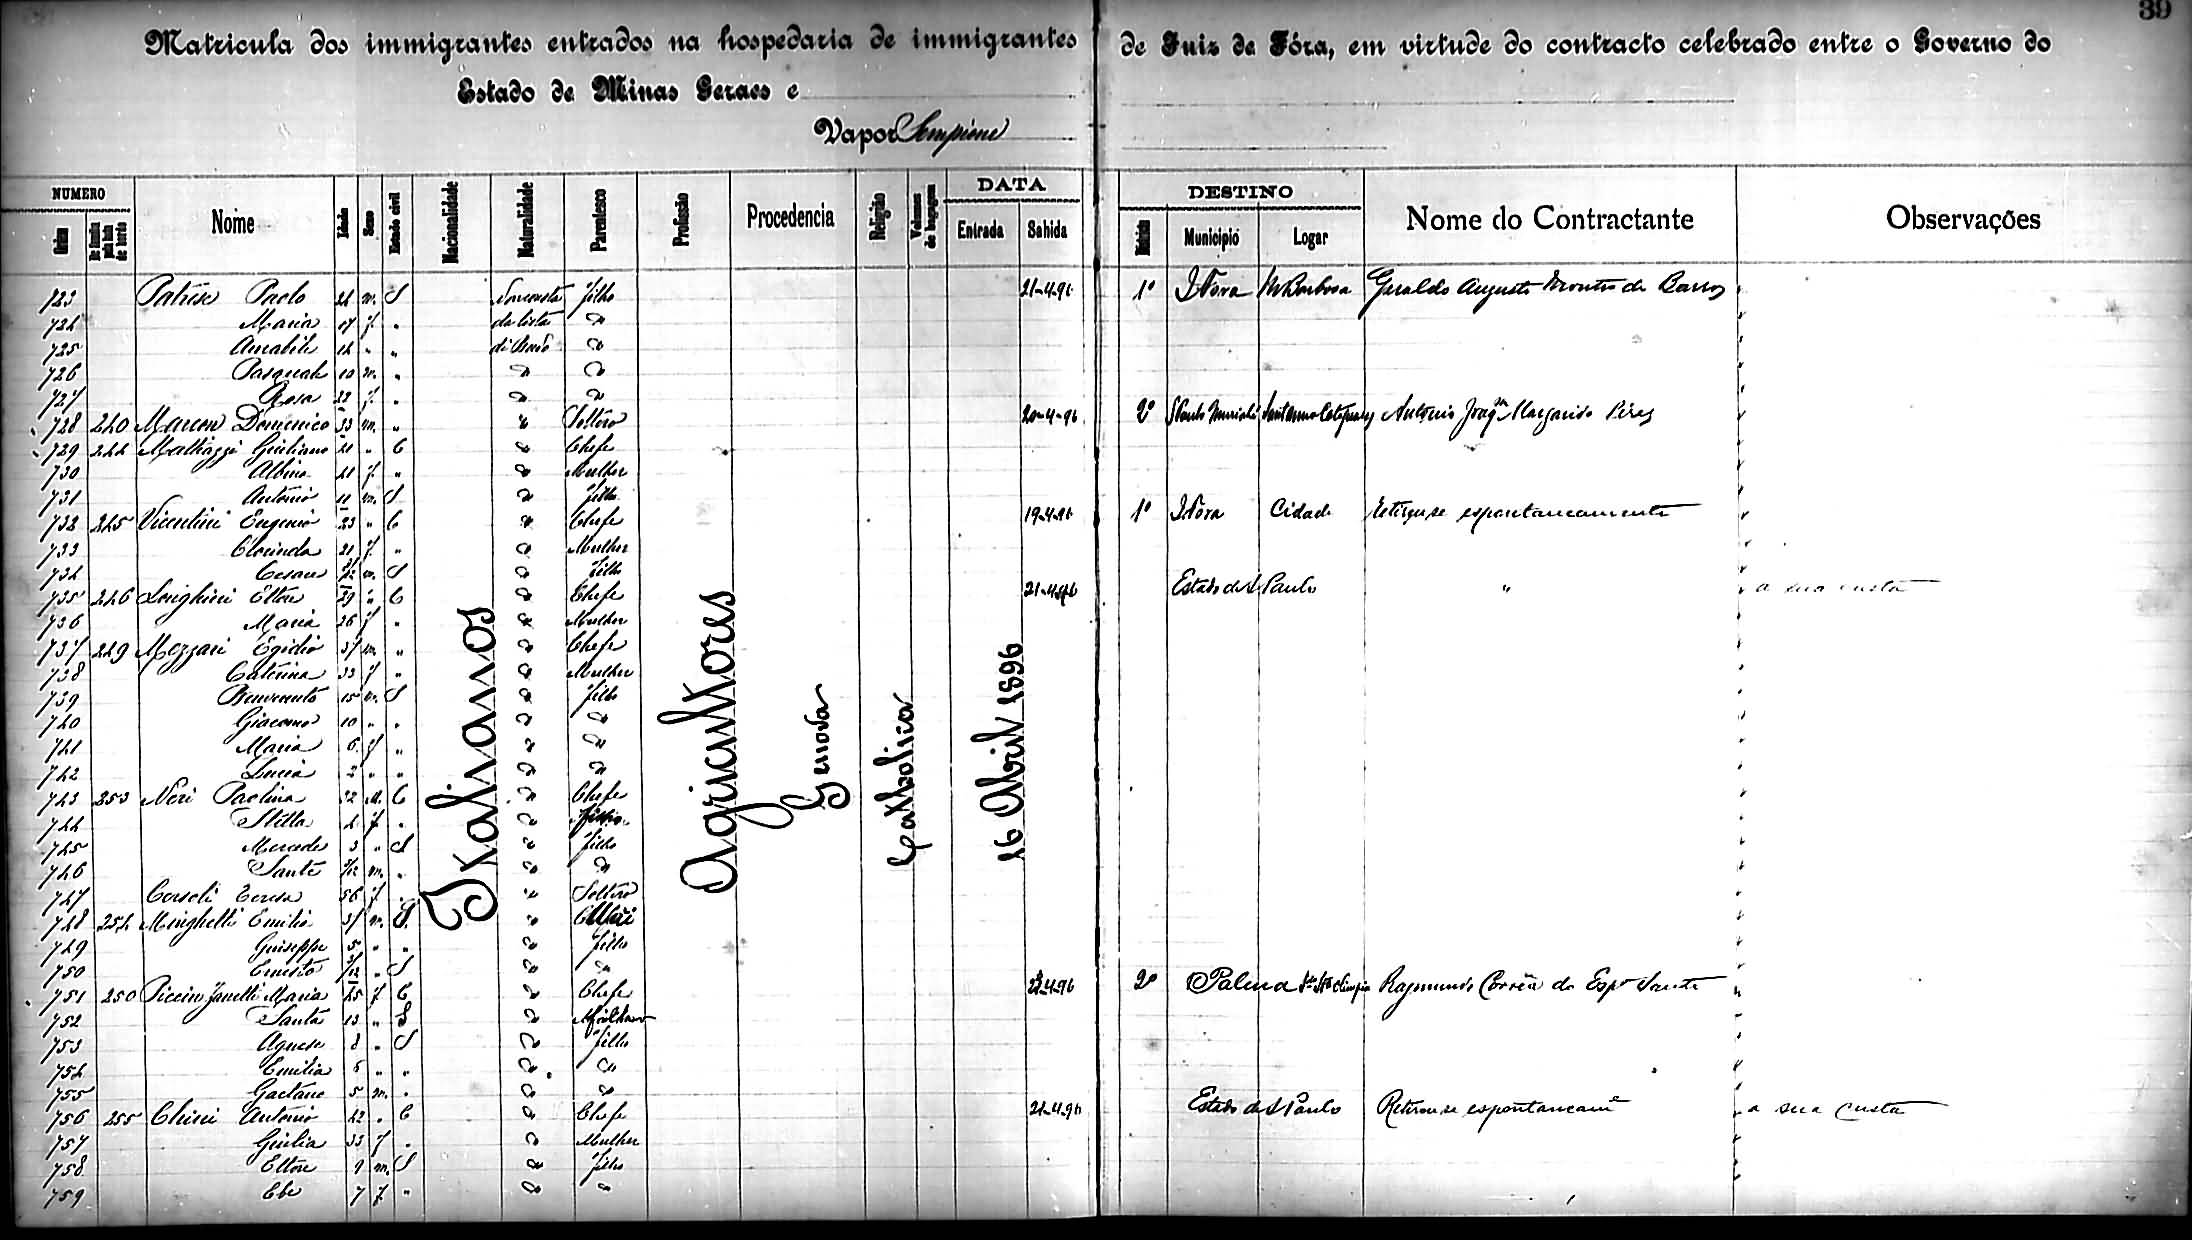 39
Matricula dos immigrantes entrados na hospedaria de immigrantes de Juiz de Fóra, em virtude do contracto celebrado entre o Governo do
Estado de Minas Geraes e
Vapor Sempione
NUMERO DATA DESTINO
Ordem De familia pela lista de bordo Nome Idade Sexo Estado civil Nacionalidade Naturalidade Parentesco Profissão Procedencia Religião Volumes de bagagem Entrada Sahida Districto Municipio Logar Nome do Contractante Observações
Italianos Agricultores Genova Catholica 16 Abril 1896
723 Patrese Paolo m. S filho 21-4-96 1º Geraldo Augusto de Barros
724 Maria 17 f. " "
725 Amabile 14 " " "
726 Pasquale 10 m. " " "
727 Rosa 22 f. " " "
728 240 Marcon Domenico 33 m. " " Solteiro 20-4-96 2º Antonio Joaqm Margarido Pires
729 244 Mattiazzi Giuliano 21 " C " Chefe
730 Albina 21 f. " " Mulher
731 Antonio 11 m. S " filho
732 245 Vicentini Eugenio 23 " C " Chefe 19-4-96 1º Cidade Retirou-se espontaneamente
733 Clorinda 21 f. " " Mulher
734 Cesare m. S " filho
735 246 Longhini Ettore 29 " C " Chefe 21-4-96 Estado de S Paulo " a sua custa
736 Maria 26 f " " Mulher
737 249 Mezzari Egidio 37 m. " " Chefe
738 Caterina 33 f " " Mulher
739 Benvenuto 15 m. S " filho
740 Giacomo 10 " " " "
741 Maria 6 f " " "
742 Lucia 2 " " " "
743 253 Neri Paolina 32 C " Chefe
744 Stella 4 f. " "
745 Mercede 3 " S " filho
746 Sante m. " " "
747 Teresa 56 f. " Solteiro
748 254 Minghetti Emilio 37 m. "
749 Guiseppe 5 " " " filho
750 Ernesto " S " "
751 250 Piccino Zanelli Maria 45 f C " Chefe 22-4-96 2º Palma Raymundo Corrêa do Espº Santo
752 Santa 13 " S "
753 Agnese 8 " S " filho
754 Emilia 6 " " " "
755 Gaetano 5 m. " " "
756 255 Chini Antonio 42 " C " Chefe 21-4-96 Estado de S Paulo Retirou-se espontaneamᵉ a sua custa
757 Giulia 33 f " " Mulher
758 Ettore 9 m. S " filho
759 Ebe 7 f. " " "